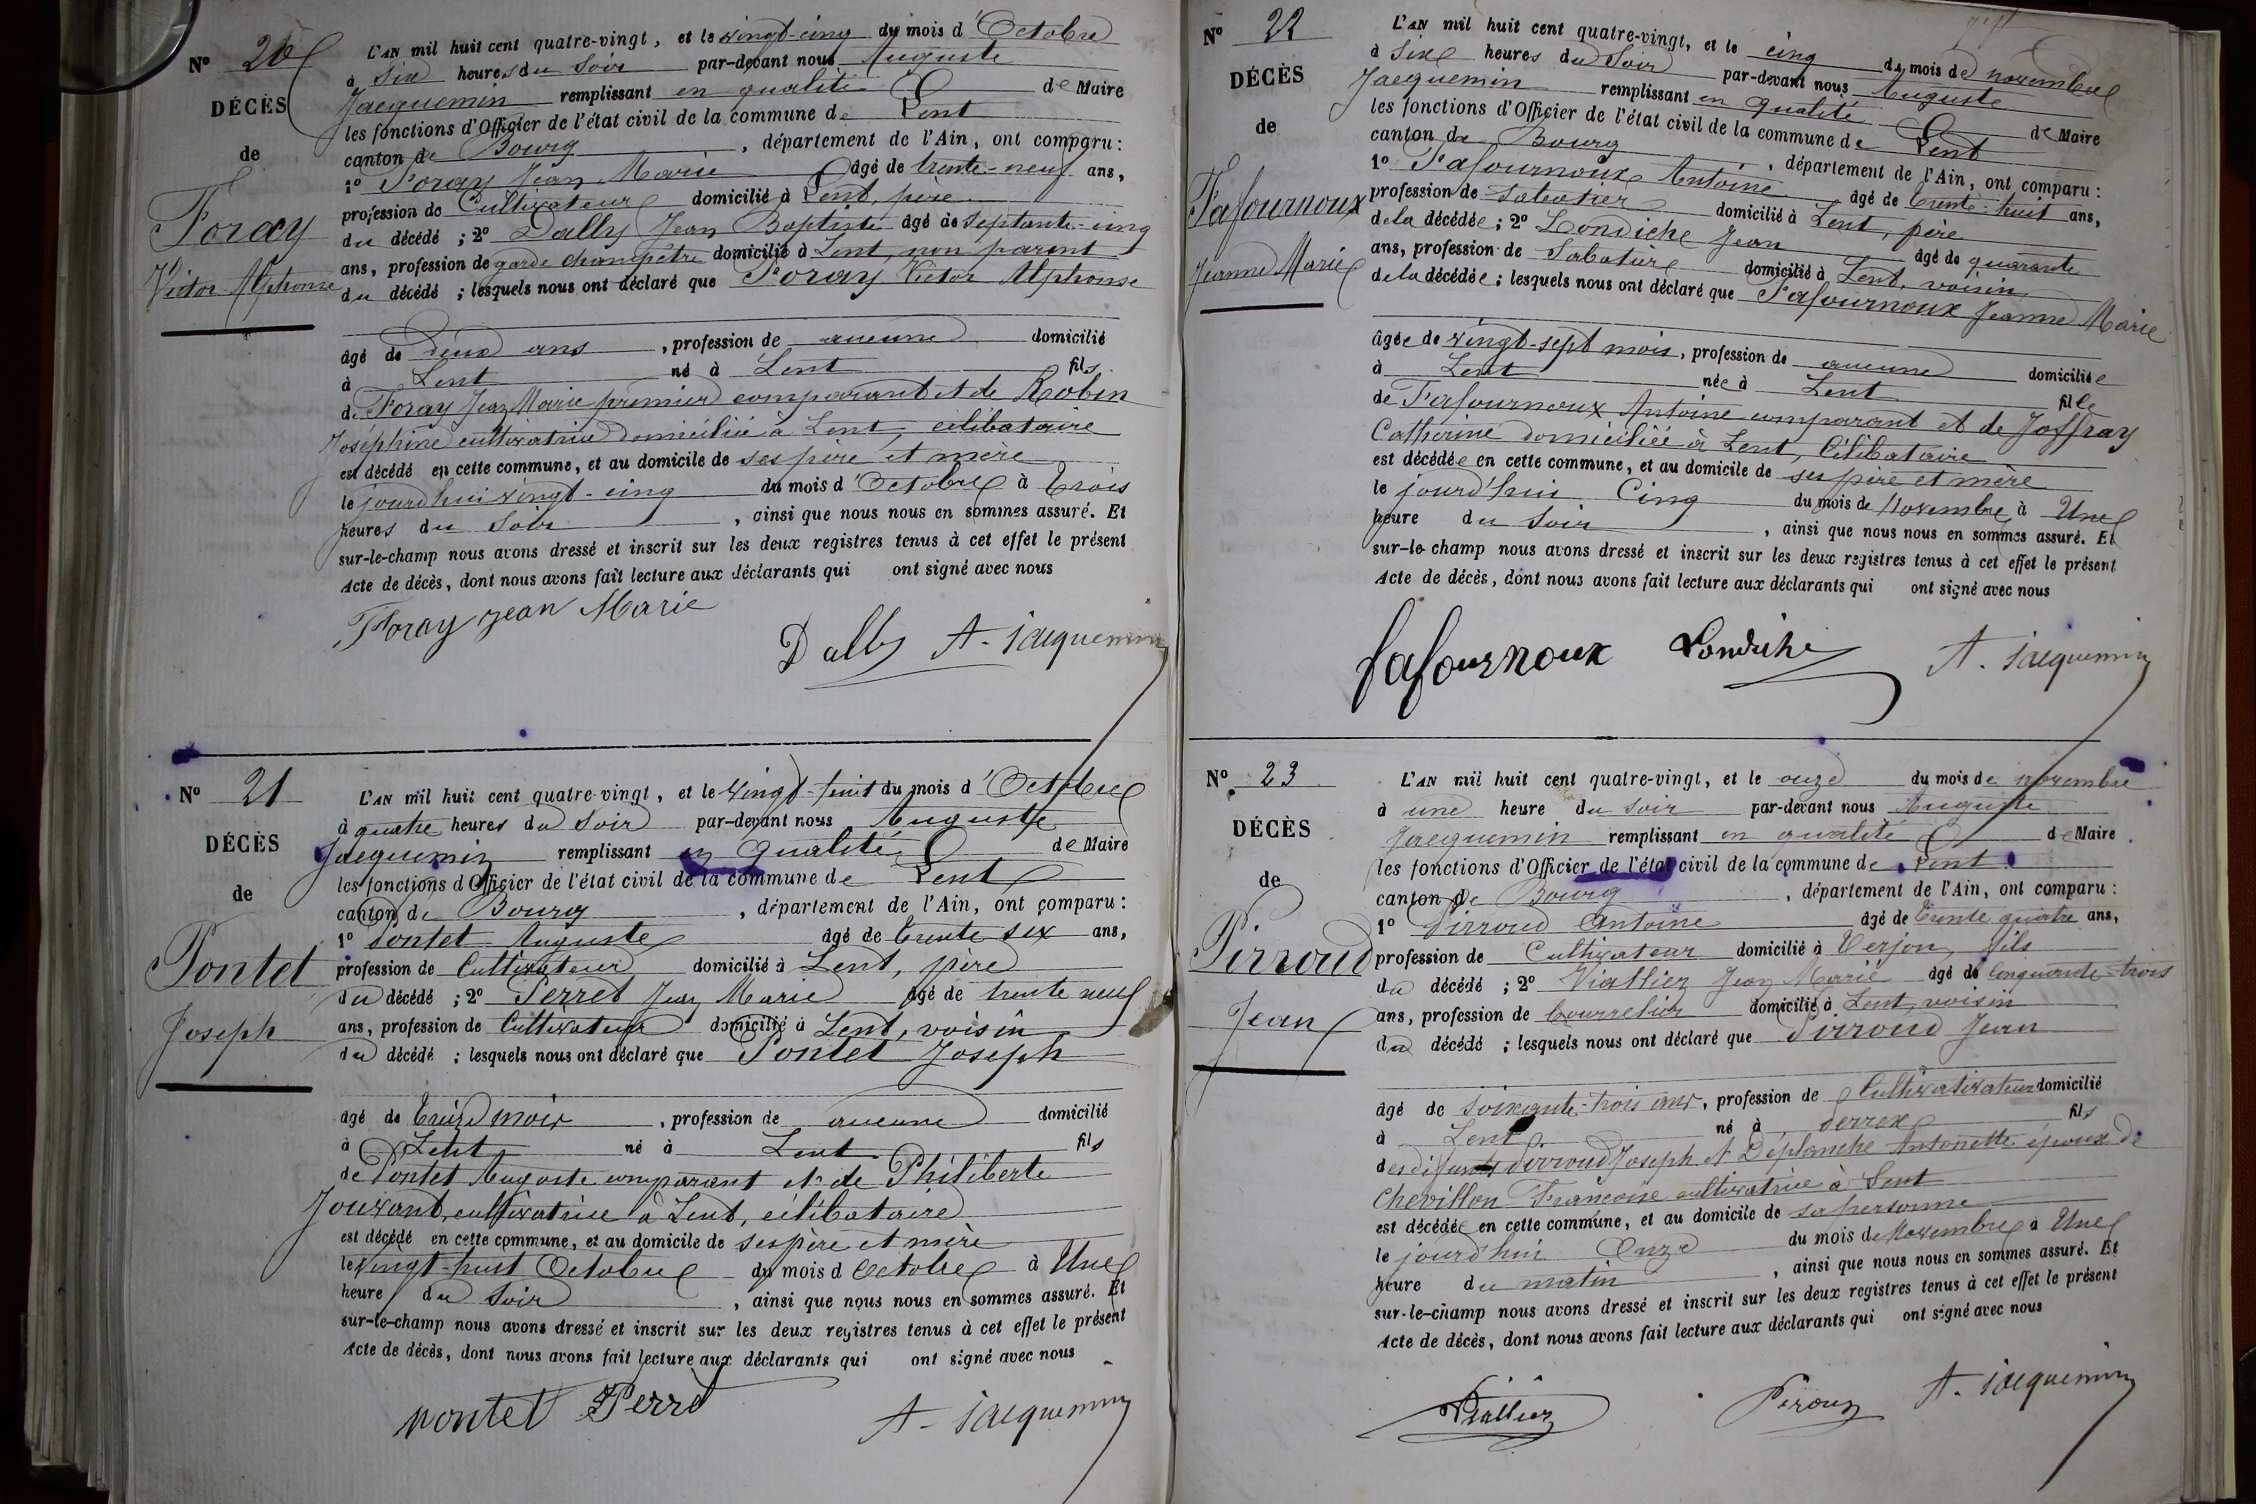 Nº 20
DÉCÈS
de
Foray
Victor Alphonse
L'AN mil huit cent quatre-vingt, et le vingt-cinq du mois d'Octobre
à Six heures du Soir par-devant nous Auguste
Jacquemin remplissant en qualité de Maire
les fonctions d'Officier de l'état civil de la commune de Lent
canton de Bourg, département de l'Ain, ont comparu :
1º Foray Jean Marie âgé de trente-neuf ans,
profession de Cultivateur domicilié à Lent, père
du décédé ; 2º Dally Jean Baptiste âgé de Septante-cinq
ans, profession de garde champêtre domicilié à Lent, non parent
du décédé ; lesquels nous ont déclaré que Foray Victor Alphonse
âgé de deux ans, profession de aucune domicilié
à Lent né à Lent fils
de Foray Jean Marie premier comparant et de Robin
Joséphine cultivatrice domiciliée à Lent, célibataire
est décédé en cette commune, et au domicile de ses père et mère
le jourd'hui vingt-cinq du mois d'Octobre à Trois
heures du Soir, ainsi que nous nous en sommes assuré. Et
sur-le-champ nous avons dressé et inscrit sur les deux registres tenus à cet effet le présent
Acte de décès, dont nous avons fait lecture aux déclarants qui ont signé avec nous
Foray jean Marie
Dally A. Jacquemin
Nº 21
DÉCÈS
de
Pontet
Joseph
L'AN mil huit cent quatre-vingt, et le vingt-huit du mois d'Octobre
à quatre heures du Soir par-devant nous Auguste
Jacquemin remplissant en qualité de Maire
les fonctions d'Officier de l'état civil de la commune de Lent
canton de Bourg, département de l'Ain, ont comparu :
1º Pontet Auguste âgé de trente six ans,
profession de Cultivateur domicilié à Lent, père
du décédé ; 2º Perret Jean Marie âgé de trente neuf
ans, profession de Cultivateur domicilié à Lent, voisin
du décédé ; lesquels nous ont déclaré que Pontet Joseph
âgé de Treize mois, profession de aucune domicilié
à Lent né à Lent fils
de Pontet Auguste comparant et de Philiberte
Jouvant, cultivatrice à Lent, célibataire
est décédé en cette commune, et au domicile de ses père et mère
le vingt-huit Octobre du mois d Octobre à Une
heure du Soir, ainsi que nous nous en sommes assuré. Et
sur-le-champ nous avons dressé et inscrit sur les deux registres tenus à cet effet le présent
Acte de décès, dont nous avons fait lecture aux déclarants qui ont signé avec nous
Pontet Perret A. Jacquemin
Nº 22
DÉCÈS
de
Fafournoux
Jeanne Marie
L'AN mil huit cent quatre-vingt, et le cinq du mois de novembre
à Six heures du Soir par-devant nous Auguste
Jacquemin remplissant en qualité de Maire
les fonctions d'Officier de l'état civil de la commune de Lent
canton de Bourg, département de l'Ain, ont comparu :
1º Fafournoux Antoine âgé de trente-huit ans,
profession de Sabotier domicilié à Lent, père
de la décédée ; 2º Londiche Jean âgé de quarante
ans, profession de Sabotier domicilié à Lent, voisin
de la décédée ; lesquels nous ont déclaré que Fafournoux Jeanne Marie
âgée de vingt-sept mois, profession de aucune domiciliée
à Lent née à Lent fille
de Fafournoux Antoine comparant et de Joffray
Catherine domiciliée à Lent, Célibataire
est décédée en cette commune, et au domicile de ses père et mère
le jourd'hui Cinq du mois de Novembre à Une
heure du Soir, ainsi que nous nous en sommes assuré. Et
sur-le-champ nous avons dressé et inscrit sur les deux registres tenus à cet effet le présent
Acte de décès, dont nous avons fait lecture aux déclarants qui ont signé avec nous
fafournoux Londiche A. Jacquemin
Nº 23
DÉCÈS
de
Pirroud
Jean
L'AN mil huit cent quatre-vingt, et le onze du mois de novembre
à une heure du Soir par-devant nous Auguste
Jacquemin remplissant en qualité de Maire
les fonctions d'Officier de l'état civil de la commune de Lent
canton de Bourg, département de l'Ain, ont comparu :
1º Pirroud Antoine âgé de Trente quatre ans,
profession de Cultivateur domicilié à Verjon, fils
du décédé ; 2º Viallier Jean Marie âgé de Cinquante-trois
ans, profession de bourrelier domicilié à Lent, voisin
du décédé ; lesquels nous ont déclaré que Pirroud Jean
âgé de soixante-trois ans, profession de Cultivativateur domicilié
à Lent né à fils
des défunts Pirroud Joseph et Déplanche Antoinette époux de
Chevillon Françoise cultivatrice à Lent
est décédé en cette commune, et au domicile de sa personne
le jourd'hui Onze du mois de Novembre à Une
heure du matin, ainsi que nous nous en sommes assuré. Et
sur-le-champ nous avons dressé et inscrit sur les deux registres tenus à cet effet le présent
Acte de décès, dont nous avons fait lecture aux déclarants qui ont signé avec nous
Viallier A. Jacquemin